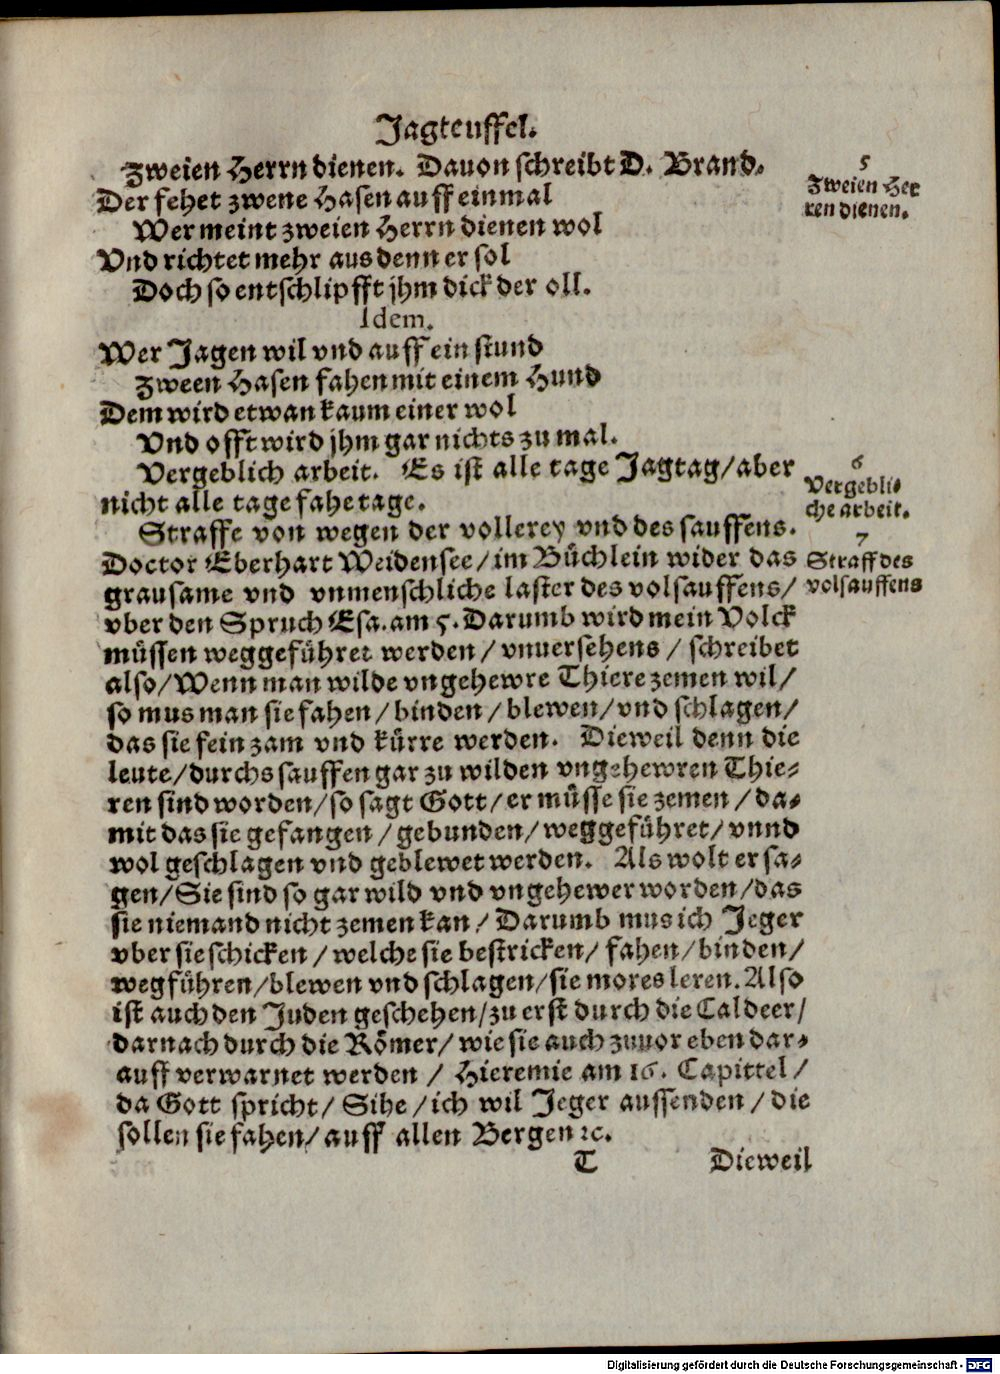 Jagteuffel.
Zweien Herrn dienen. Dauon schreibt D. Brand.
Der fehet zwene Hasen auff einmal
Wer meint zweien Herrn dienen wol
Vnd richtet mehr aus denn er sol
Doch so entschlipfft jhm dick der oll.
Idem.
Wer Jagen wil vnd auff ein stund
Zween Hasen fahen mit einem Hund
Dem wird etwan kaum einer wol
Vnd offt wird jhm gar nichts zu mal.
Vergeblich arbeit. Es ist alle tage Jagtag/aber
nicht alle tage fahetage.
Straffe von wegen der vollerey vnd des sauffens.
Doctor Eberhart Weidensee/im Büchlein wider das
grausame vnd vnmenschliche laster des volsauffens/
vber den Spruch Esa. am 5. Darumb wird mein Volck
müssen weggeführet werden / vnuersehens / schreibet
also/Wenn man wilde vngehewre Thiere zemen wil/
so mus man sie fahen / binden / blewen/vnd schlagen/
das sie fein zam vnd kürre werden. Dieweil denn die
leute/durchs sauffen gar zu wilden vngehewren Thie-
ren sind worden/so sagt Gott/er müsse sie zemen / da-
mit das sie gefangen / gebunden/weggeführet/ vnnd
wol geschlagen vnd geblewet werden. Als wolt er sa-
gen/Sie sind so gar wild vnd vngehewer worden/das
sie niemand nicht zemen kan / Darumb mus ich Jeger
vber sie schicken / welche sie bestricken/ fahen/binden/
wegführen/blewen vnd schlagen/sie mores leren. Also
ist auch den Juden geschehen/zu erst durch die Caldeer/
darnach durch die Römer/ wie sie auch zuuor eben dar-
auff verwarnet werden / Hieremie am 16. Capittel /
da Gott spricht/ Sihe /ich wil Jeger aussenden / die
sollen sie fahen/ auff allen Bergen ꝛc.
T Dieweil
5
Zweien Her
ren dienen.
6
Vergebli-
che arbeit.
7
Straff des
volsauffens
Digitalisierung gefördert durch die Deutsche Forschungsgemeinschaft - DFG